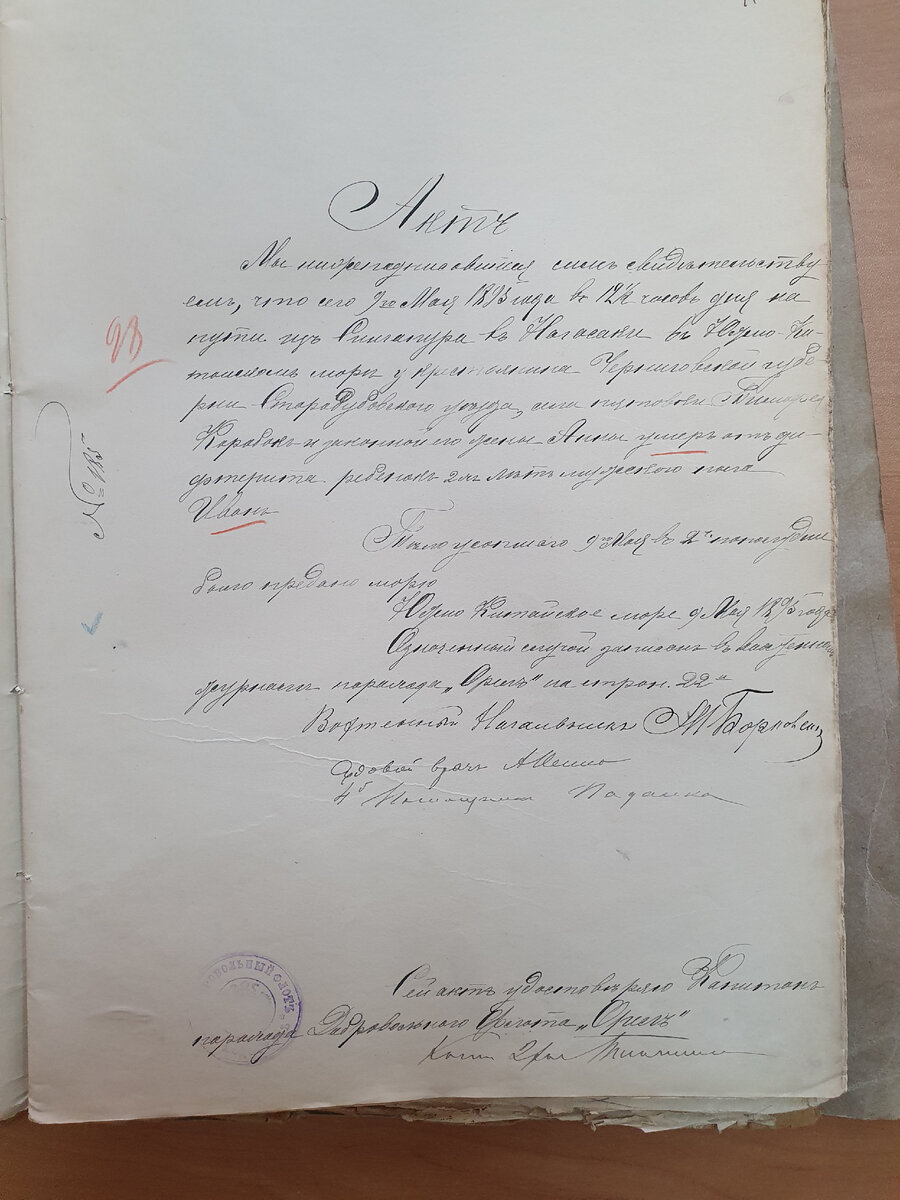 Актъ
Мы нижеподписавшіяся симъ свидѣтельству
емъ, что сего 9го Мая 1895 года въ 12½ часовъ дня на
пути изъ Сингапура въ Нагасаки въ Южно-Ки-
тайскомъ морѣ у крестьянина Черниговской губе
рніи Стародубовскаго уѣзда, села Пятовска Тимофея
Коробокъ и законной его жены Анны умеръ отъ ди-
фтерита ребенокъ 2хъ лѣтъ мужского пола
Иванъ
Тѣло усопшаго 9го Мая въ 2ч пополудни
было предано морю
Южно Китайское море 9 Мая 1895 года
Означенный случай записанъ въ вахтенномъ
журналѣ парохода „Орелъ" на стран. 22й
Вахтенный Начальникъ
Судовой врачъ
4й Помощникъ
98
№ 185
ДОБРОВОЛЬНЫЙ ФЛОТЪ
Сей актъ удостовѣряю Капитанъ
парохода Добровольнаго Флота „Орелъ"